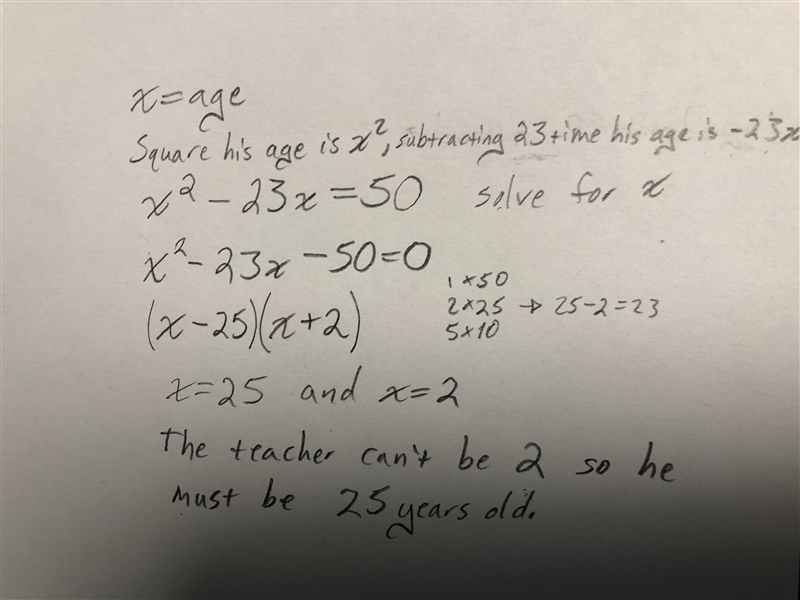 x = age
Square his age is x², subtracting 23 time his age is -23x
x² - 23x = 50 solve for x
x² - 23x - 50 = 0
1 × 50
(x - 25)(x + 2) 2 × 25 → 25 - 2 = 23
5 × 10
x = 25 and x = 2
The teacher can't be 2 so he
must be 25 years old.